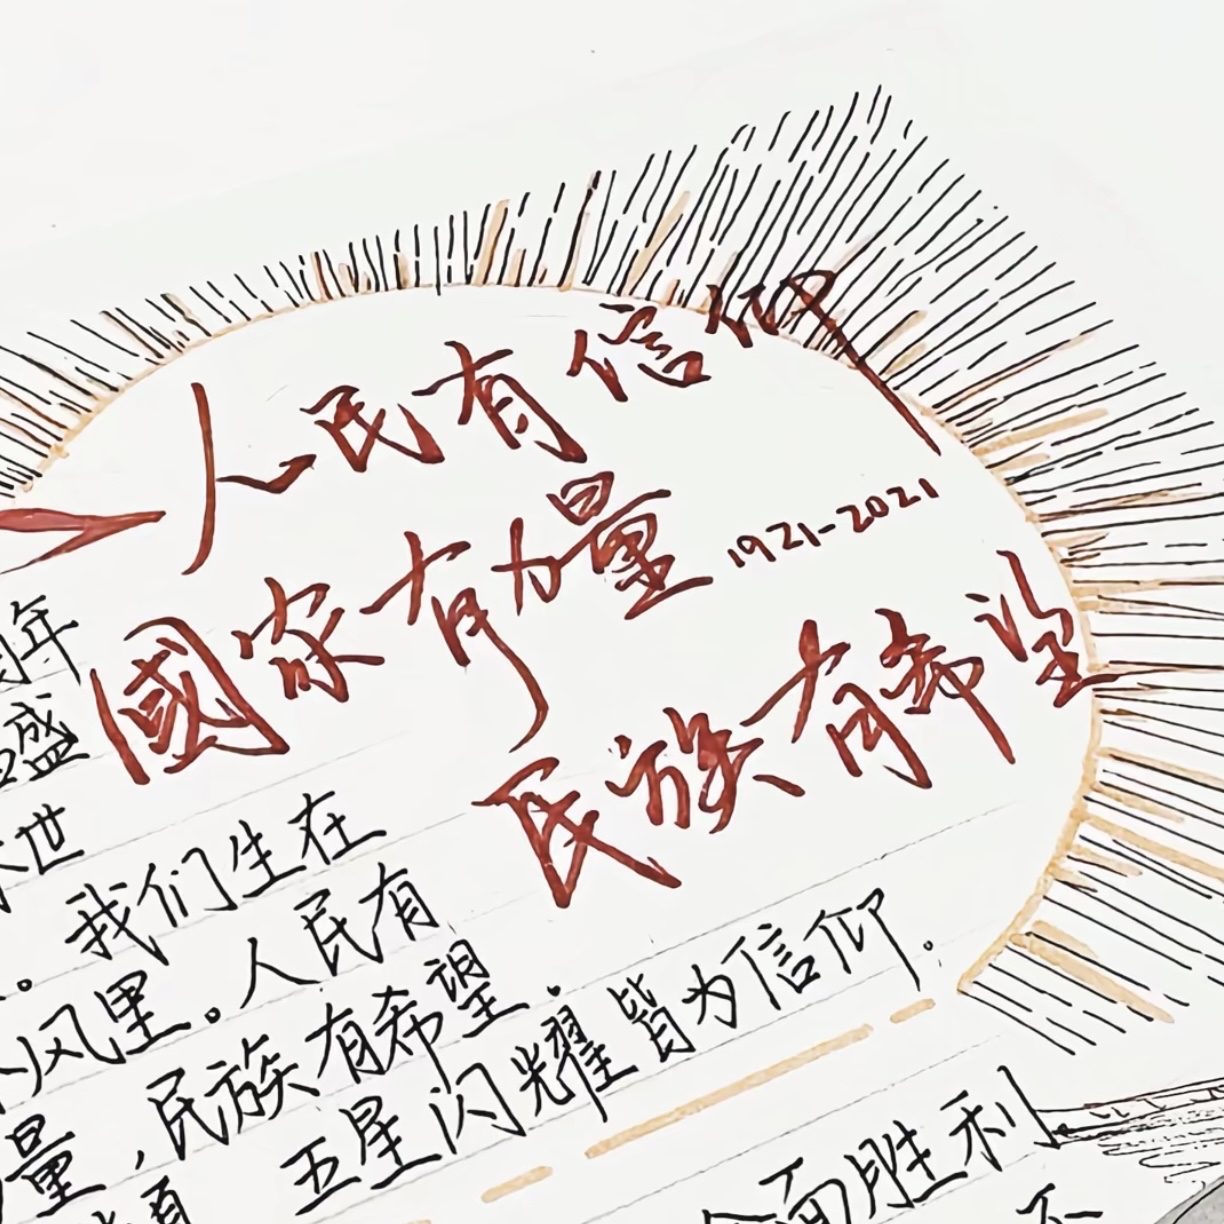 人民有信仰
國家有力量
1921-2021
民族有希望
年
盛
世
。我们生在
风里。人民有
量,民族有希望.
五星闪耀皆为信仰.
面胜利
不